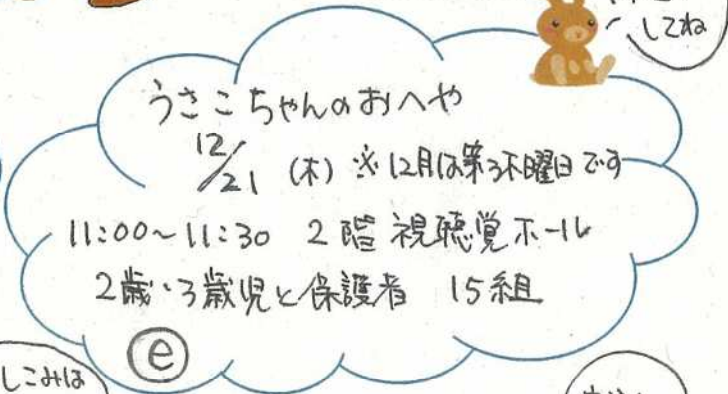 してね
うさこちゃんのおへや
12/21 (木) ※12月は第3木曜日です
11:00~11:30 2階 視聴覚ホール
2歳・3歳児と保護者 15組
ⓔ
しこみは